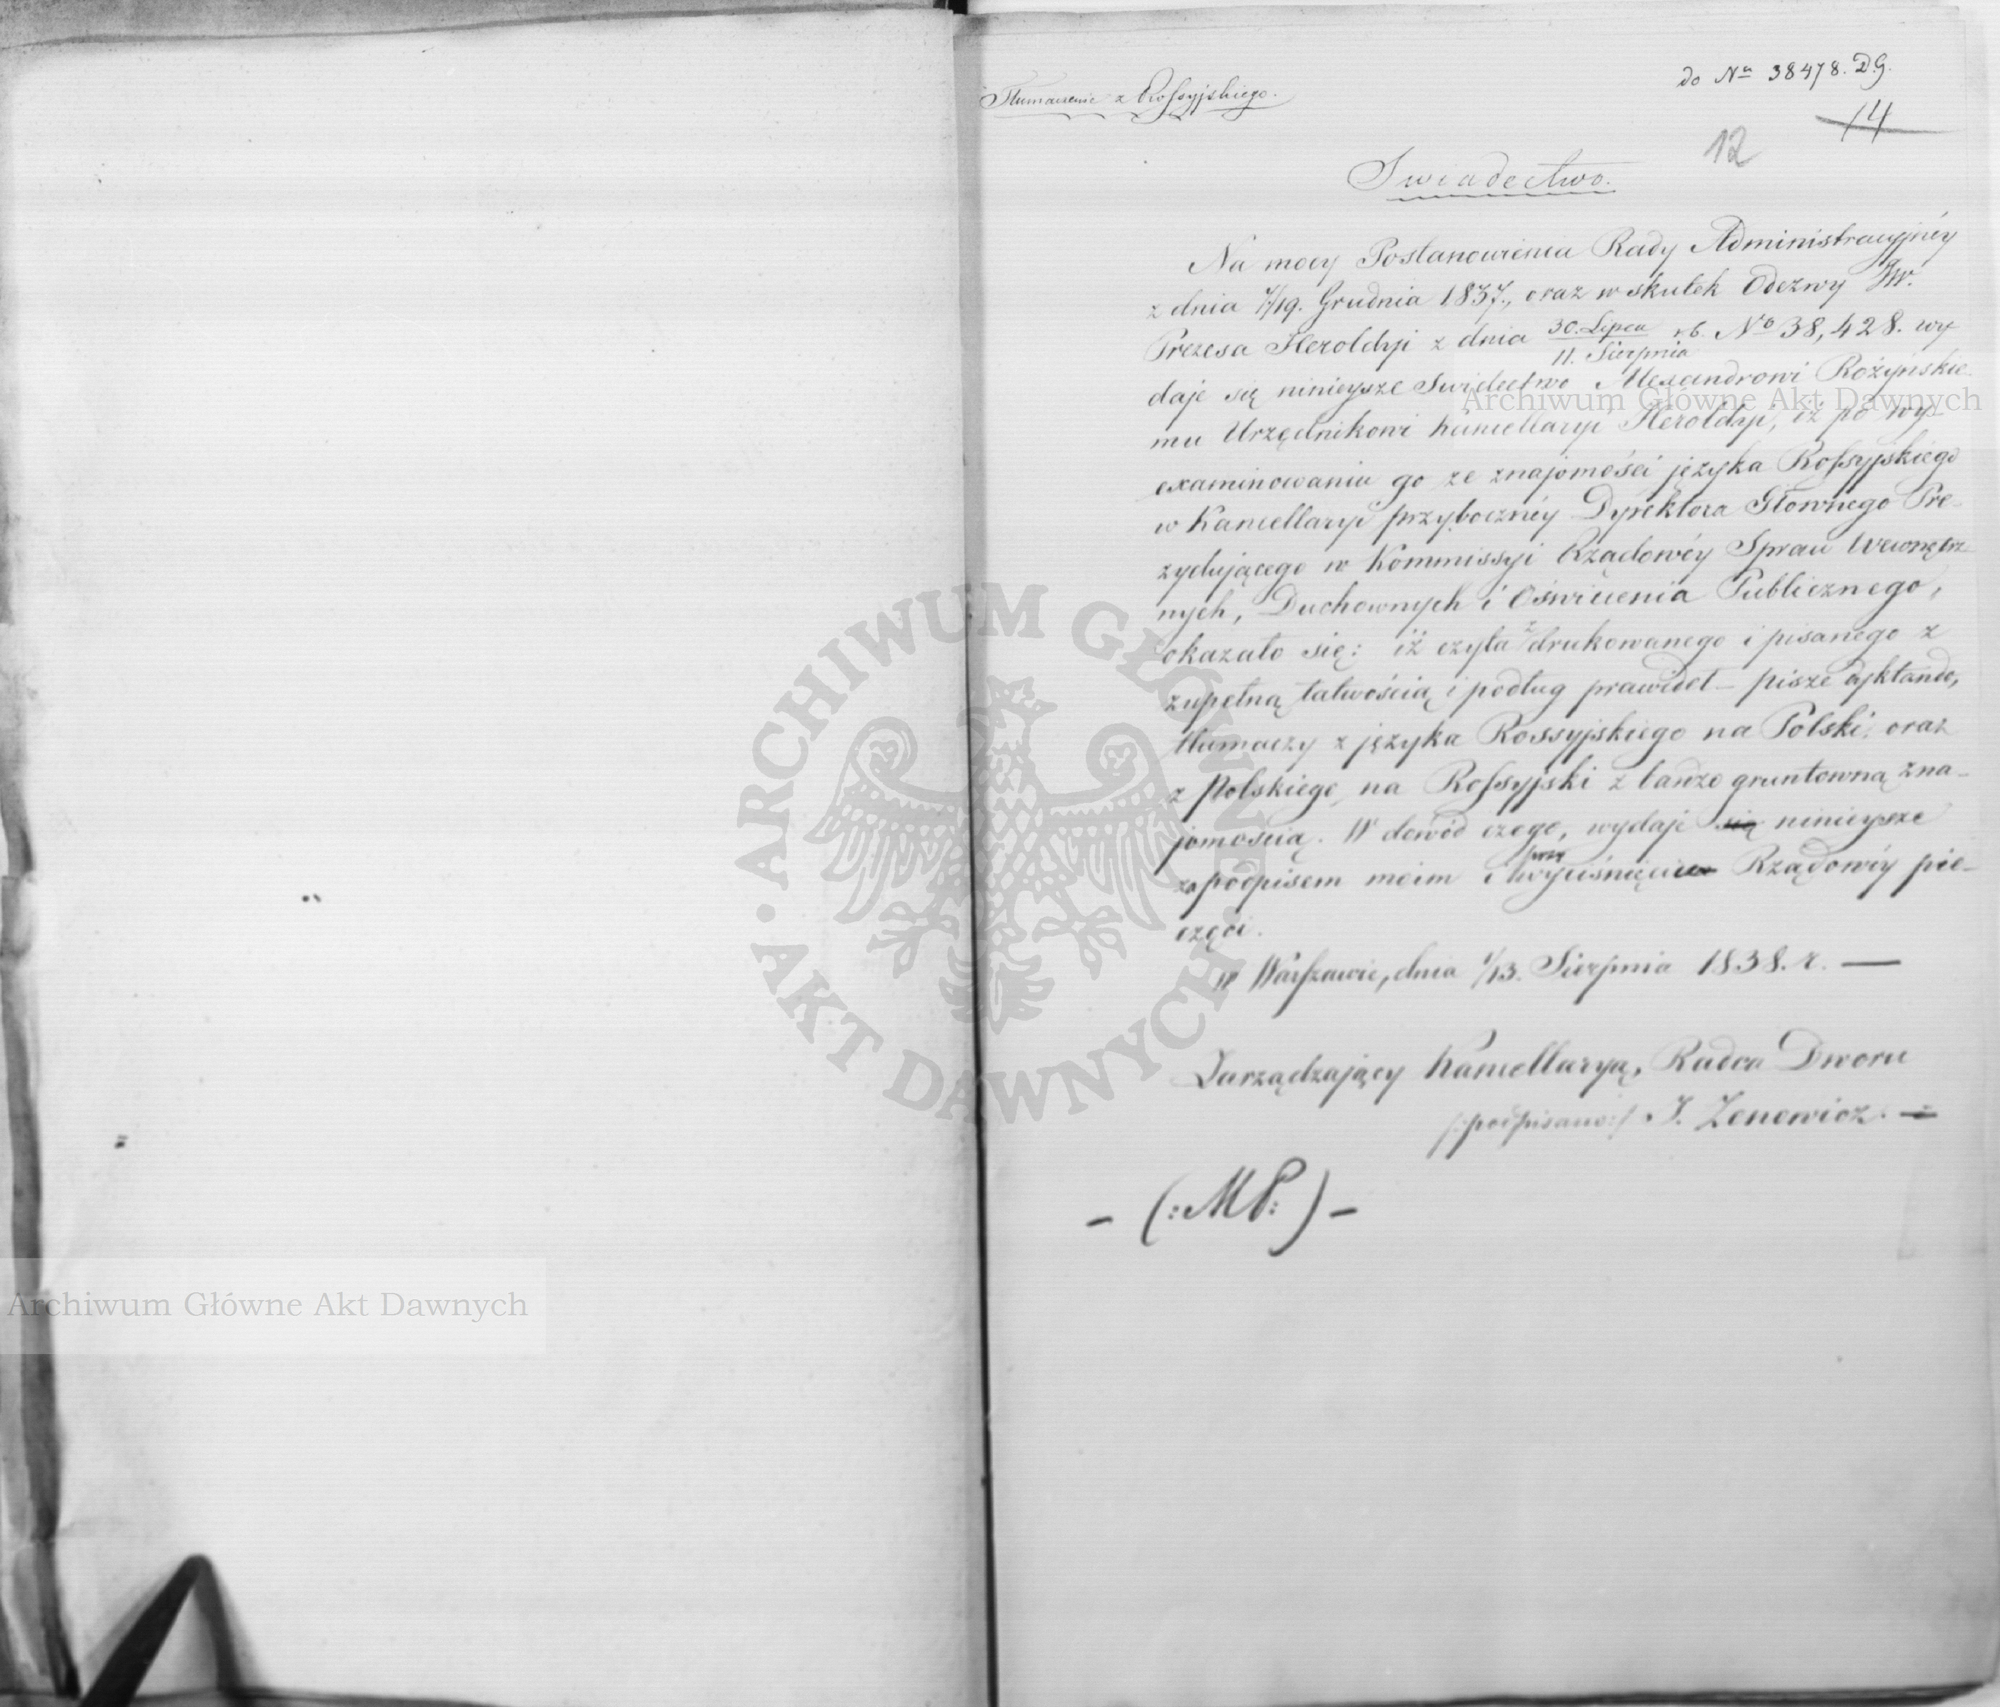 Tłumaczenie z Rossyjskiego.
do Nru 38478. D.G.
14
12
Swiadectwo.
Na mocy Postanowienia Rady Administracyjnéy
z dnia 7/19. Grudnia 1837., oraz w skutek Odezwy JW.
Prezesa Heroldyi z dnia 30. Lipca / 11. Sierpnia r.b. No 38,428. wy
daje się ninieysze Swidectwo Alexandrowi Rożyńskie
mu Urzędnikowi Kancellaryi Heroldyi, iż po wy-
examinowaniu go ze znajomości języka Rossyjskiego
w Kancellaryi przybocznéy Dyrektora Głownego Pre-
zydującego w Kommissyi Rządowéy Spraw Wewnętrz-
nych, Duchownych i Oświecenia Publicznego,
okazało się: iż czyta z drukowanego i pisanego z
zupełną łatwością i podług prawideł – pisze dyktando,
tłumaczy z języka Rossyjskiego na Polski, oraz
z Polskiego na Rossyjski z bardzo gruntowną zna-
jomością. W dowód czego, wydaje się ninieysze
za podpisem moim i przy wyciśnięciu Rządowéy pie-
częci.
W Warszawie, dnia 1/13. Sierpnia 1838. r. —
Zarządzający Kancellaryą, Radca Dworu
/:podpisano:/ J. Zenowicz. —
– (:MP:) –
Archiwum Główne Akt Dawnych
Archiwum Główne Akt Dawnych
ARCHIWUM GŁÓWNE · AKT DAWNYCH ·